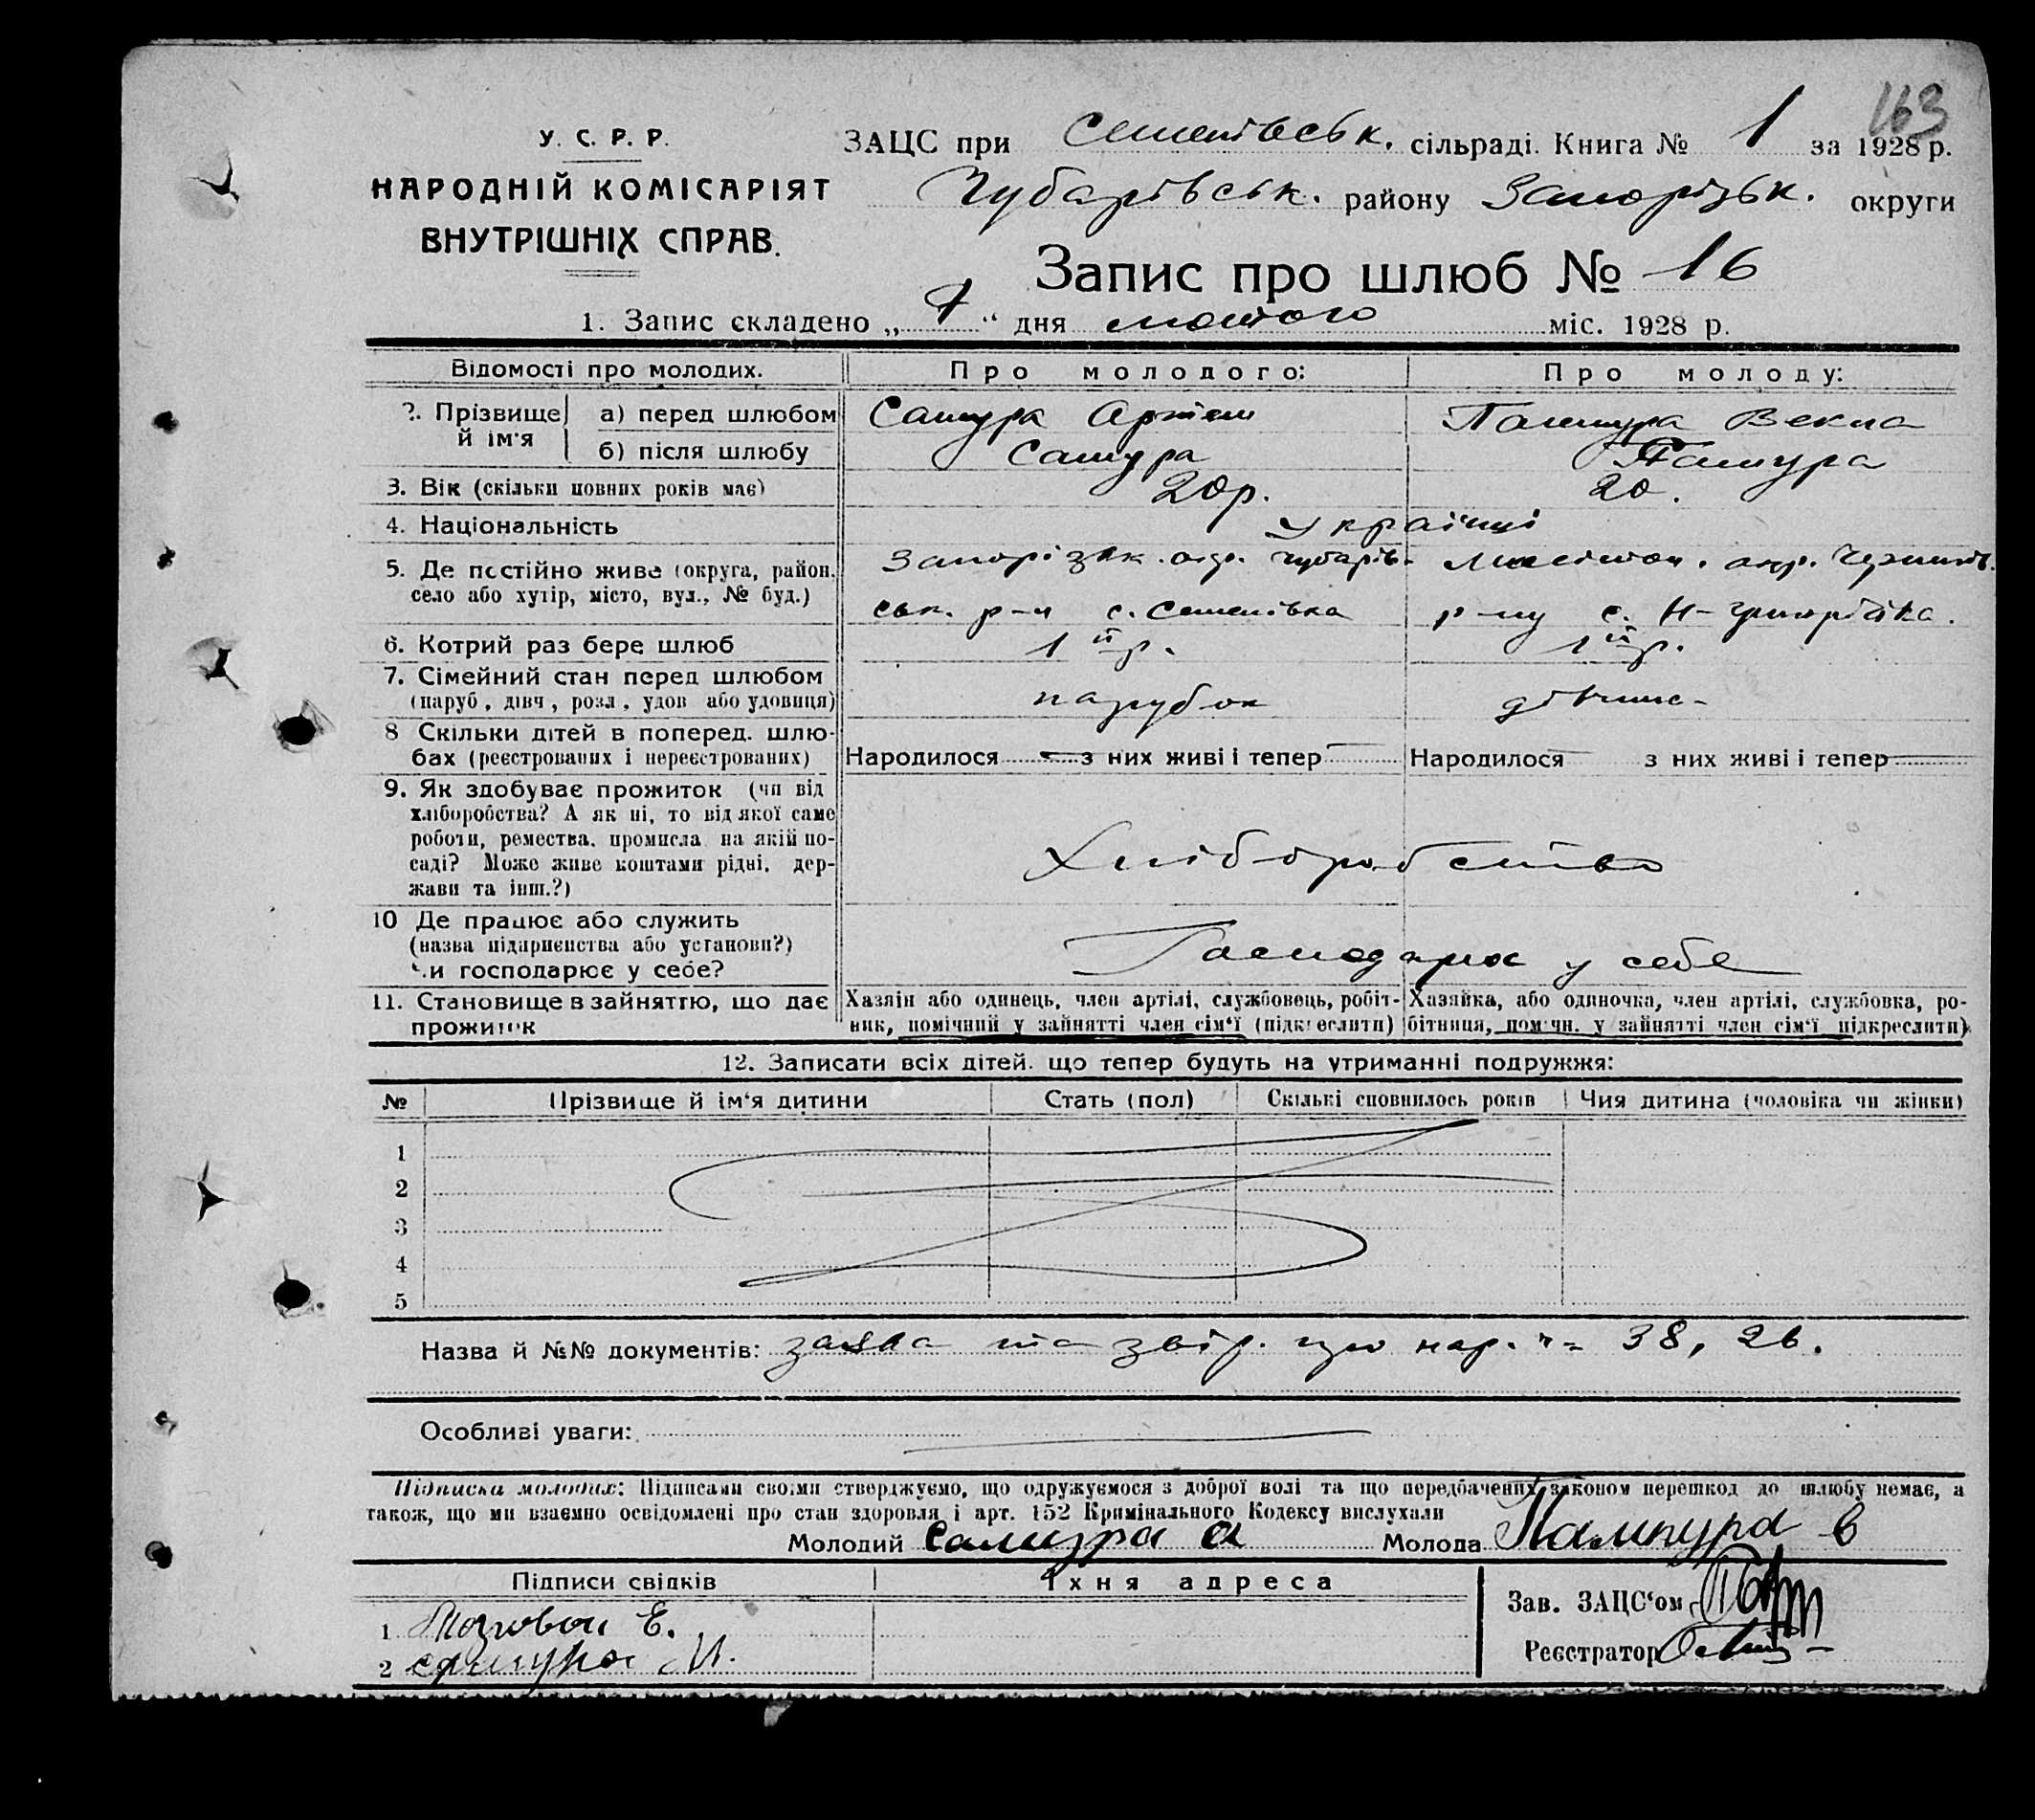 163
У. С. Р. Р.
НАРОДНІЙ КОМІСАРІЯТ
ВНУТРІШНІХ СПРАВ.
ЗАЦС при Семенівськ. сільраді. Книга № 1 за 1928 р.
Чубарівськ. району Запорізьк. округи
Запис про шлюб № 16
1. Запис складено „ 7 “ дня лютого міс. 1928 р.
Відомості про молодих. Про молодого: Про молоду:
2. Прізвище й ім'я а) перед шлюбом Самура Артем Пампура Векла
б) після шлюбу Самура
3. Вік (скільки повних років має) 20р. 20.
4. Національність Українці
5. Де постійно живе (округа, район, Запорізьк. окр. Чубарів- окр.
село або хутір, місто, вул., № буд.) ськ. р-н с. Семенівка р-ну с. Н-Григорівка.
6. Котрий раз бере шлюб 1й р. 1й р.
7. Сімейний стан перед шлюбом
(паруб, дівч, розл, удов або удовиця) парубок дівчина
8 Скільки дітей в поперед. шлю-
бах (реєстрованих і нереєстрованих) Народилося — з них живі і тепер — Народилося — з них живі і тепер —
9. Як здобуває прожиток (чи від
хліборобства? А як ні, то від якої саме
роботи, ремества, промисла на якій по-
саді? Може живе коштами рідні, дер-
жави та інш.?) Хліборобство
10 Де працює або служить
(назва підприємства або установи?)
чи господарює у себе? Господарює у себе
11. Становище в зайняттю, що дає Хазяін або одинець, член артілі, службовець, робіт- Хазяйка, або одиночка, член артілі, службовка, ро-
прожиток ник, помічний у зайнятті член сім'ї (підкреслити) бітниця, помічн. у зайнятті член сім'ї підкреслити)
12. Записати всіх дітей, що тепер будуть на утриманні подружжя:
№ Прізвище й ім'я дитини Стать (пол) Скількі сповнилось років Чия дитина (чоловіка чи жінки)
1
2
3
4
5
Назва й №№ документів: заява та звір. про нар. 38, 26.
Особливі уваги:
Підписка молодих: Підписами своїми стверджуємо, що одружуємося з доброї волі та що передбачених законом перешкод до шлюбу немає, а
також, що ми взаємно освідомлені про стан здоровля і арт. 152 Кримінального Кодексу вислухали
Молодий Самура А Молода Пампура В
Підписи свідків Їхня адреса
1 Е. Зав. ЗАЦС'ом
2 Самура И. Реєстратор